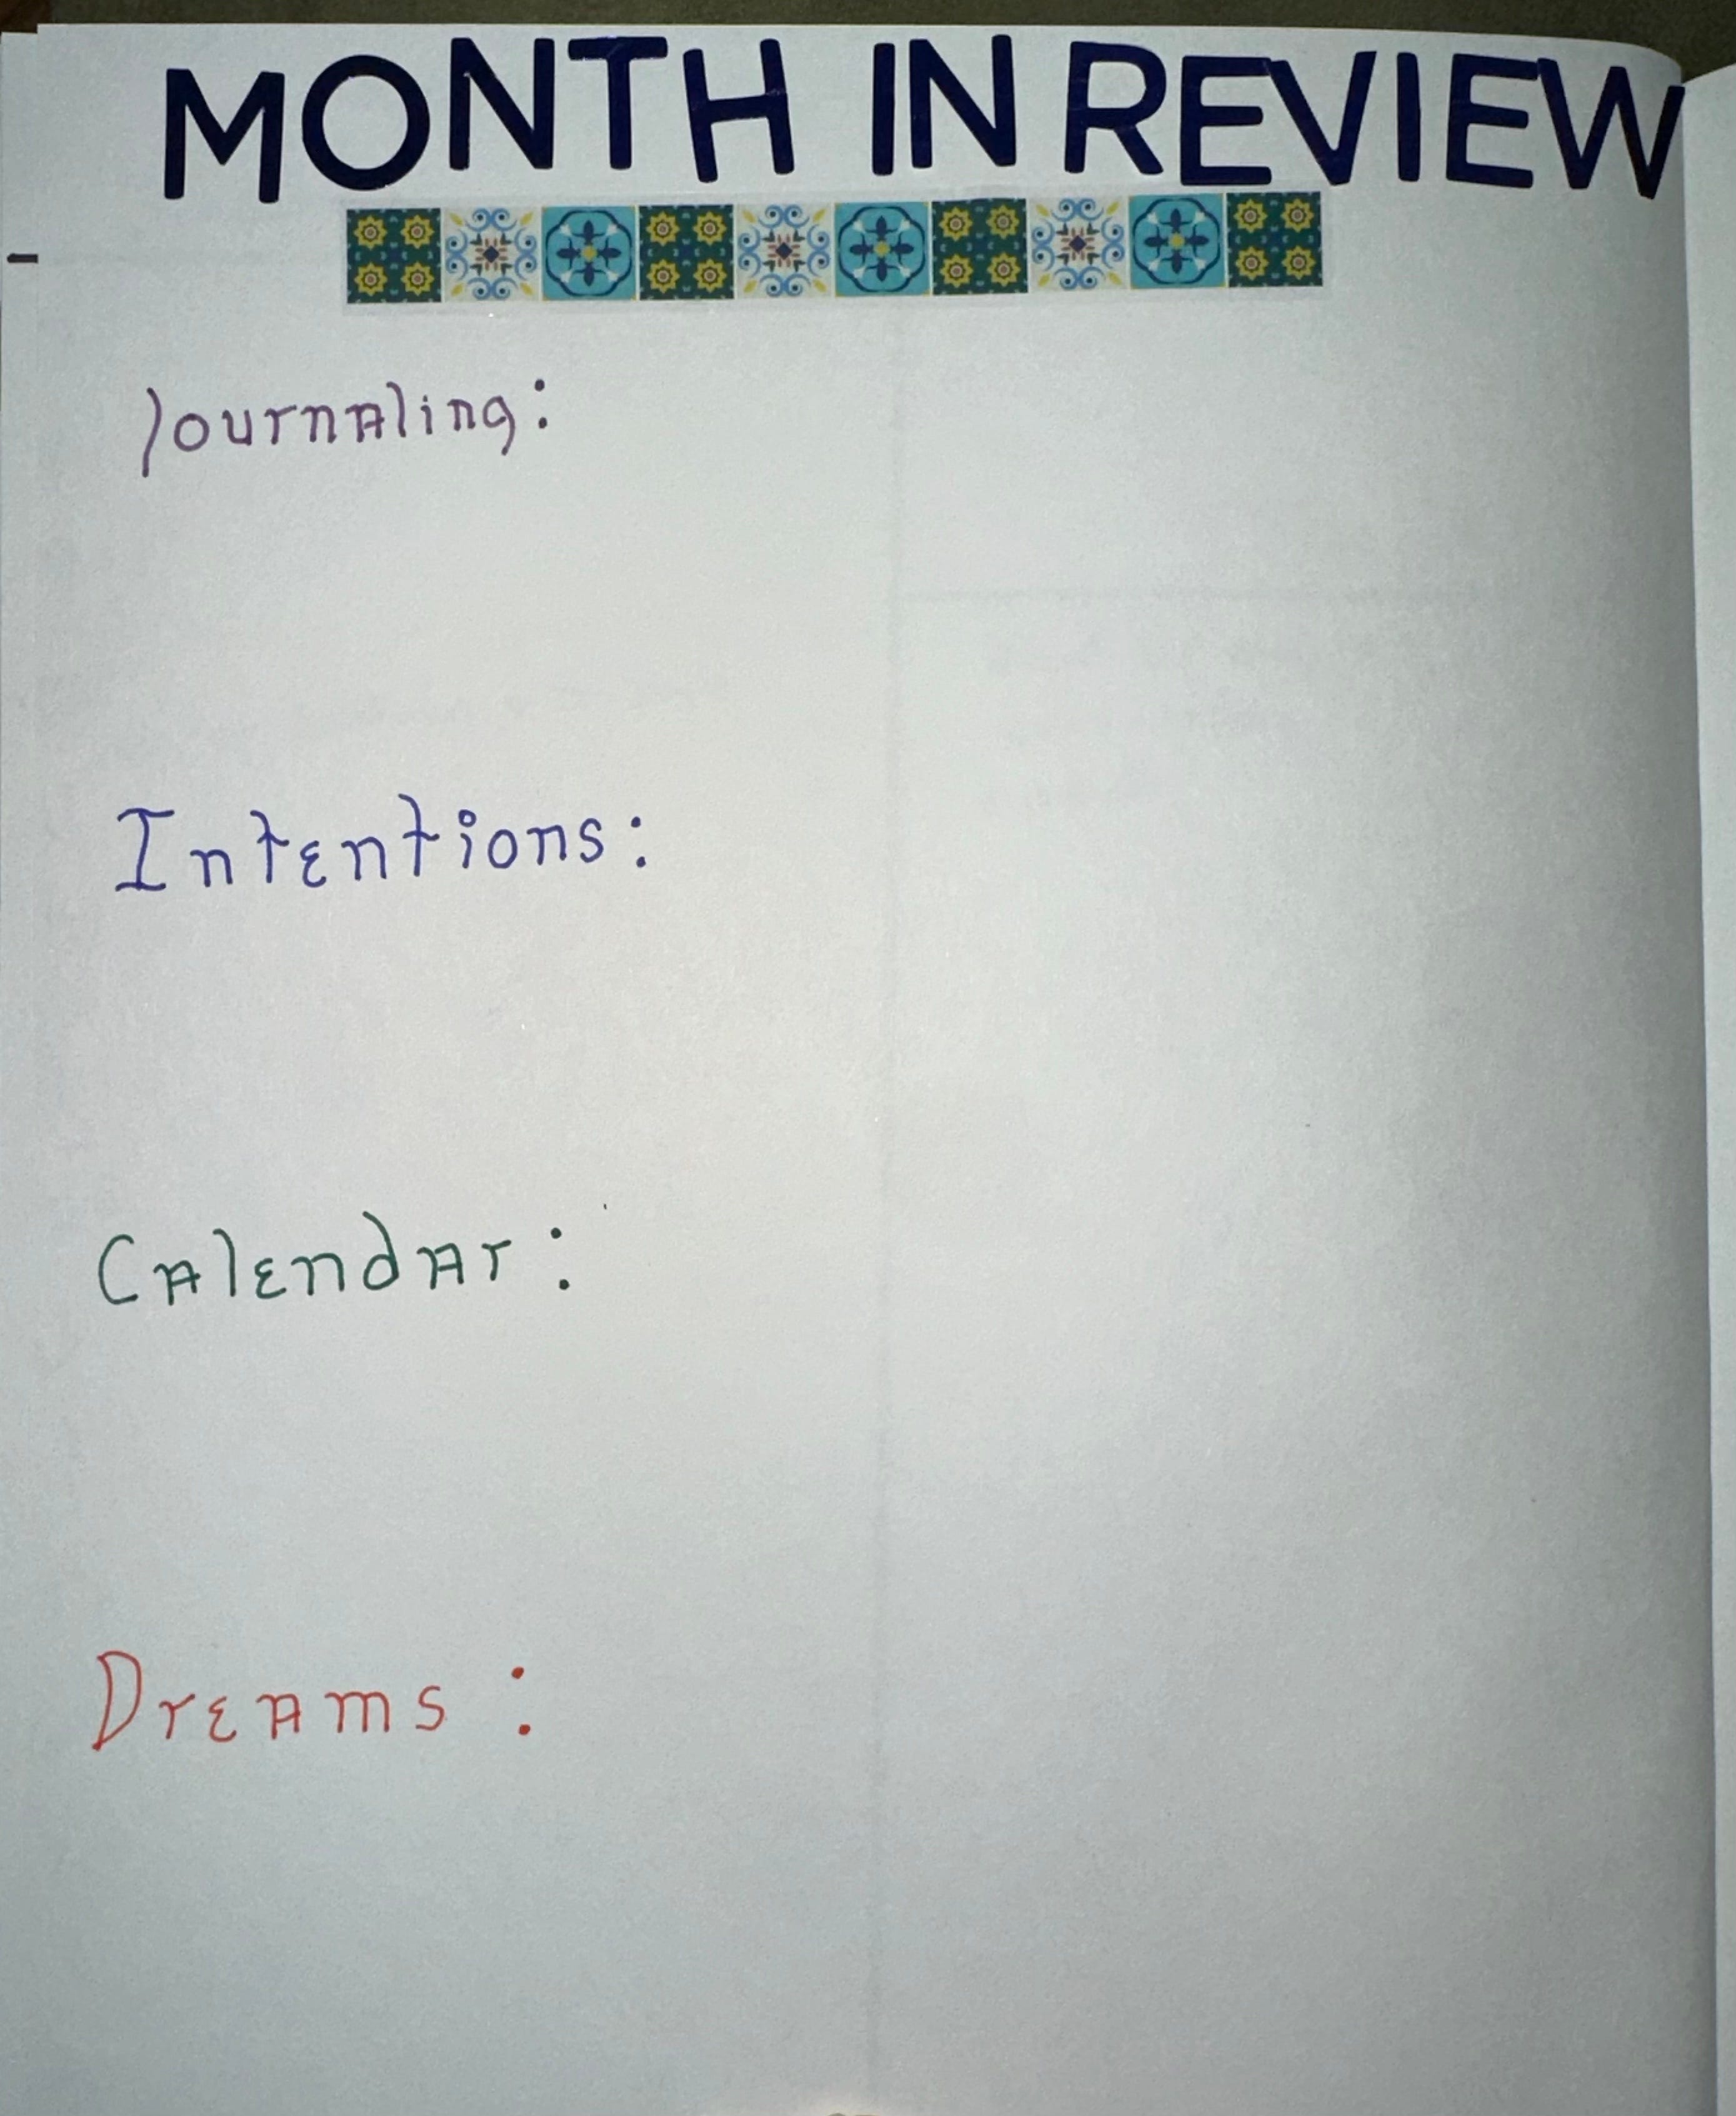 MONTH IN REVIEW
Journaling:
Intentions:
Calendar:
Dreams: